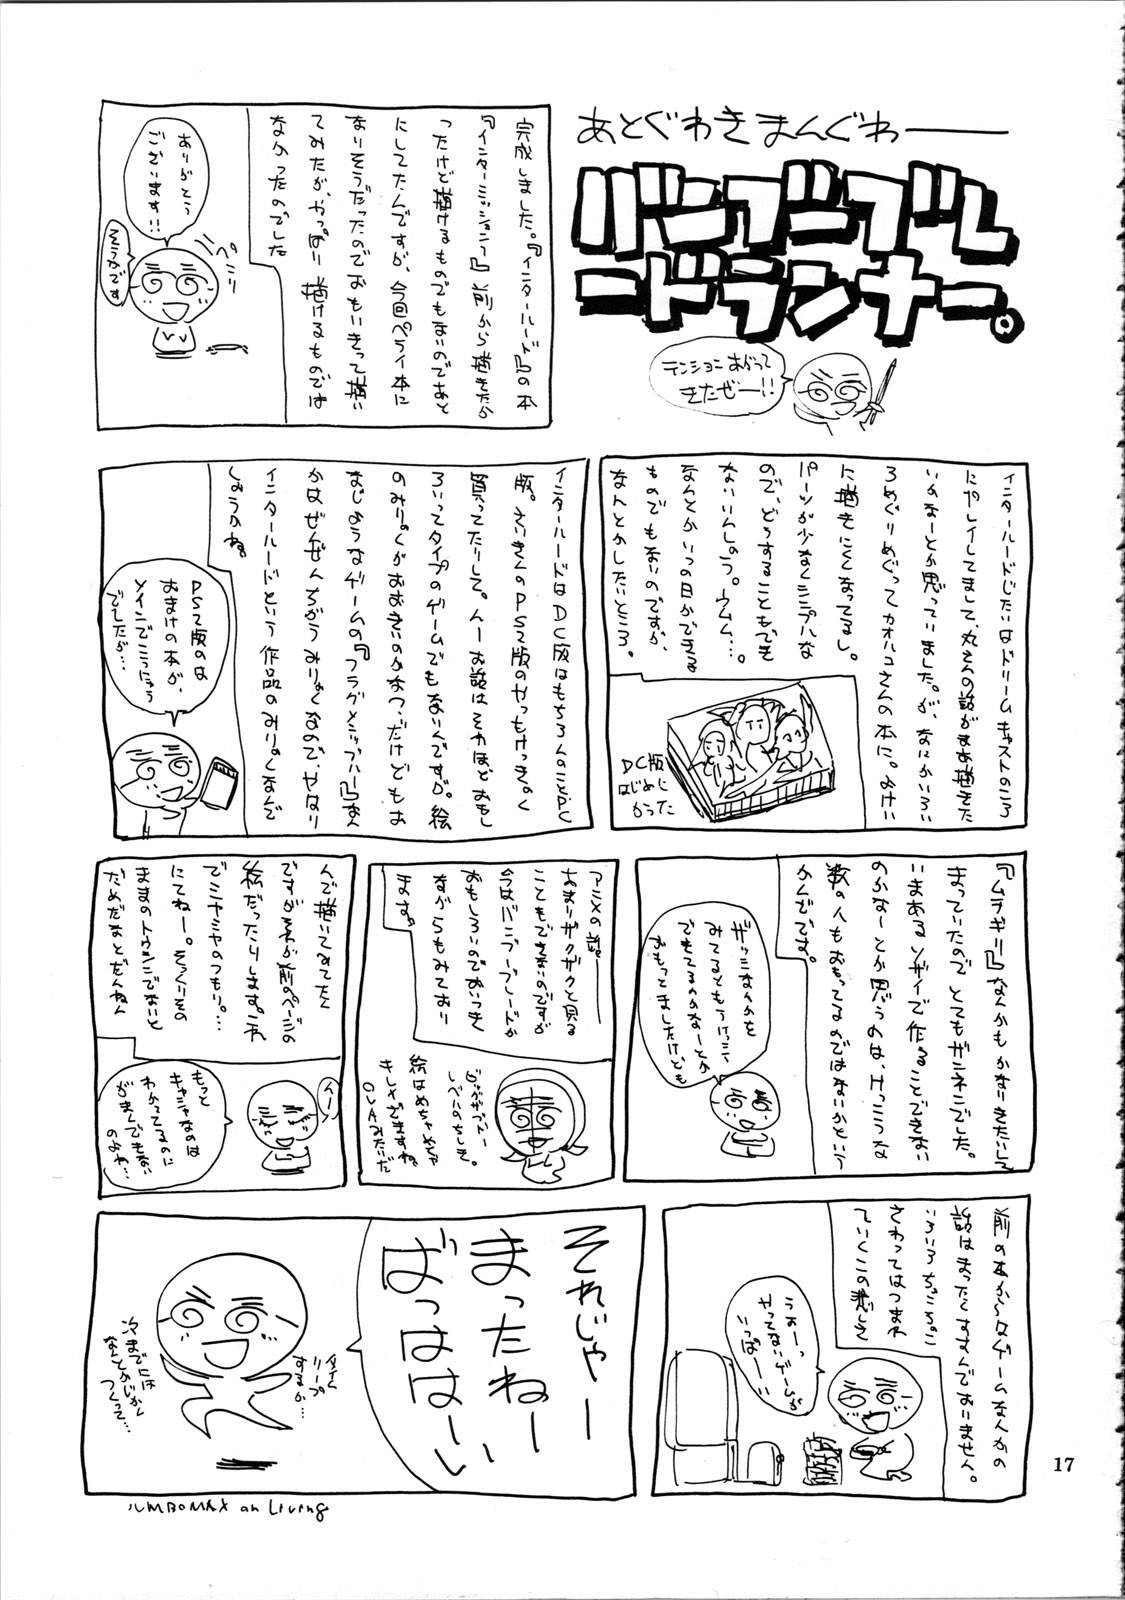 あとぐわきまんぐわー
バンブーブレ
ードランナー。
テンションあがって
きたぜー!!
完成しました。『インタールード』の本
『インターミッション』前から描きたか
ったけど描けるものでもないのであと
にしてたんですが、今回ペライ本に
なりそうだったのでおもいきって描い
てみたが、やっぱり描けるものでは
なかったのでした
ありがとう
ございます!!
そうかです
ペこり
インタールードじたいはドリームキャストのころ
にプレイしてまして、丸さんの話がまあ描きた
いかなーとか思っていました。が、なにかいろい
ろめぐりめぐってカオルコさんの本に。おけい
に描きにくくなってるし。
パーツが少なくシンプルな
ので、どうすることもでき
ないいんしょう。ウムム…。
なんとかいつの日かできる
ものでもないのですが、
なんとかしたいところ。
DC版
はじめに
かった
インタールードはDC版はもちろんのことPC
版。さいきんのPS2版のやつもけっきょく
買ってたりして。んー お話はそれほどおもし
ろいってタイプのゲームでもないんですが。絵
のみりょくがおおきいのかなっ、だけどもお
なじようなゲームの『フラグとシップル』なん
かはぜんぜんちがうみりょくなので、やはり
インタールードという作品のみりょくなんで
しょうかね。
PS2版のは
おまけの本が、
メインでこうにゅう
でしたが…
『ムラギリ』なんかもかなりきたいして
まっていたので とてもザンネンでした。
いまあるソザイで作ることできない
のかなーとか思うのは、けっこうな
数の人もおもってるのではないかという
かんじです。
ギッシなんかを
みてるともうけっこう
できてるのかなーとか
おもってましたけども
アニメの話ー
あまりザクザクと見る
こともできないのですが
今はバンブーブレードが
おもしろいのでおいつき
ながらもみており
ます。
レベルのちしき。
絵はめちゃめちゃ
キレイですね。
OVAみたいだ
んで描いてみてたん
ですがそれが前のページの
絵だったりします。これ
でミヤミヤのつもり。…
にてねー。そっくりその
ままのトゥーンでないと
だめだなとざんねん
んー
もっと
キャシャなのは
わかってるのに
がまんできない
のよね…
前の本からはゲームなんかの
話はまったくすすんでおりません。
いろいろちょこちょこ
さわってはつまれ
ていくこの悲しさ
うぉーっ
やってないゲームが
いっぱーい
それじゃー
まったねー
ばっははーい
タイム
リープ
するか…
次までには
なんとかじかん
つくって…
ルMBOMAX on Living
17